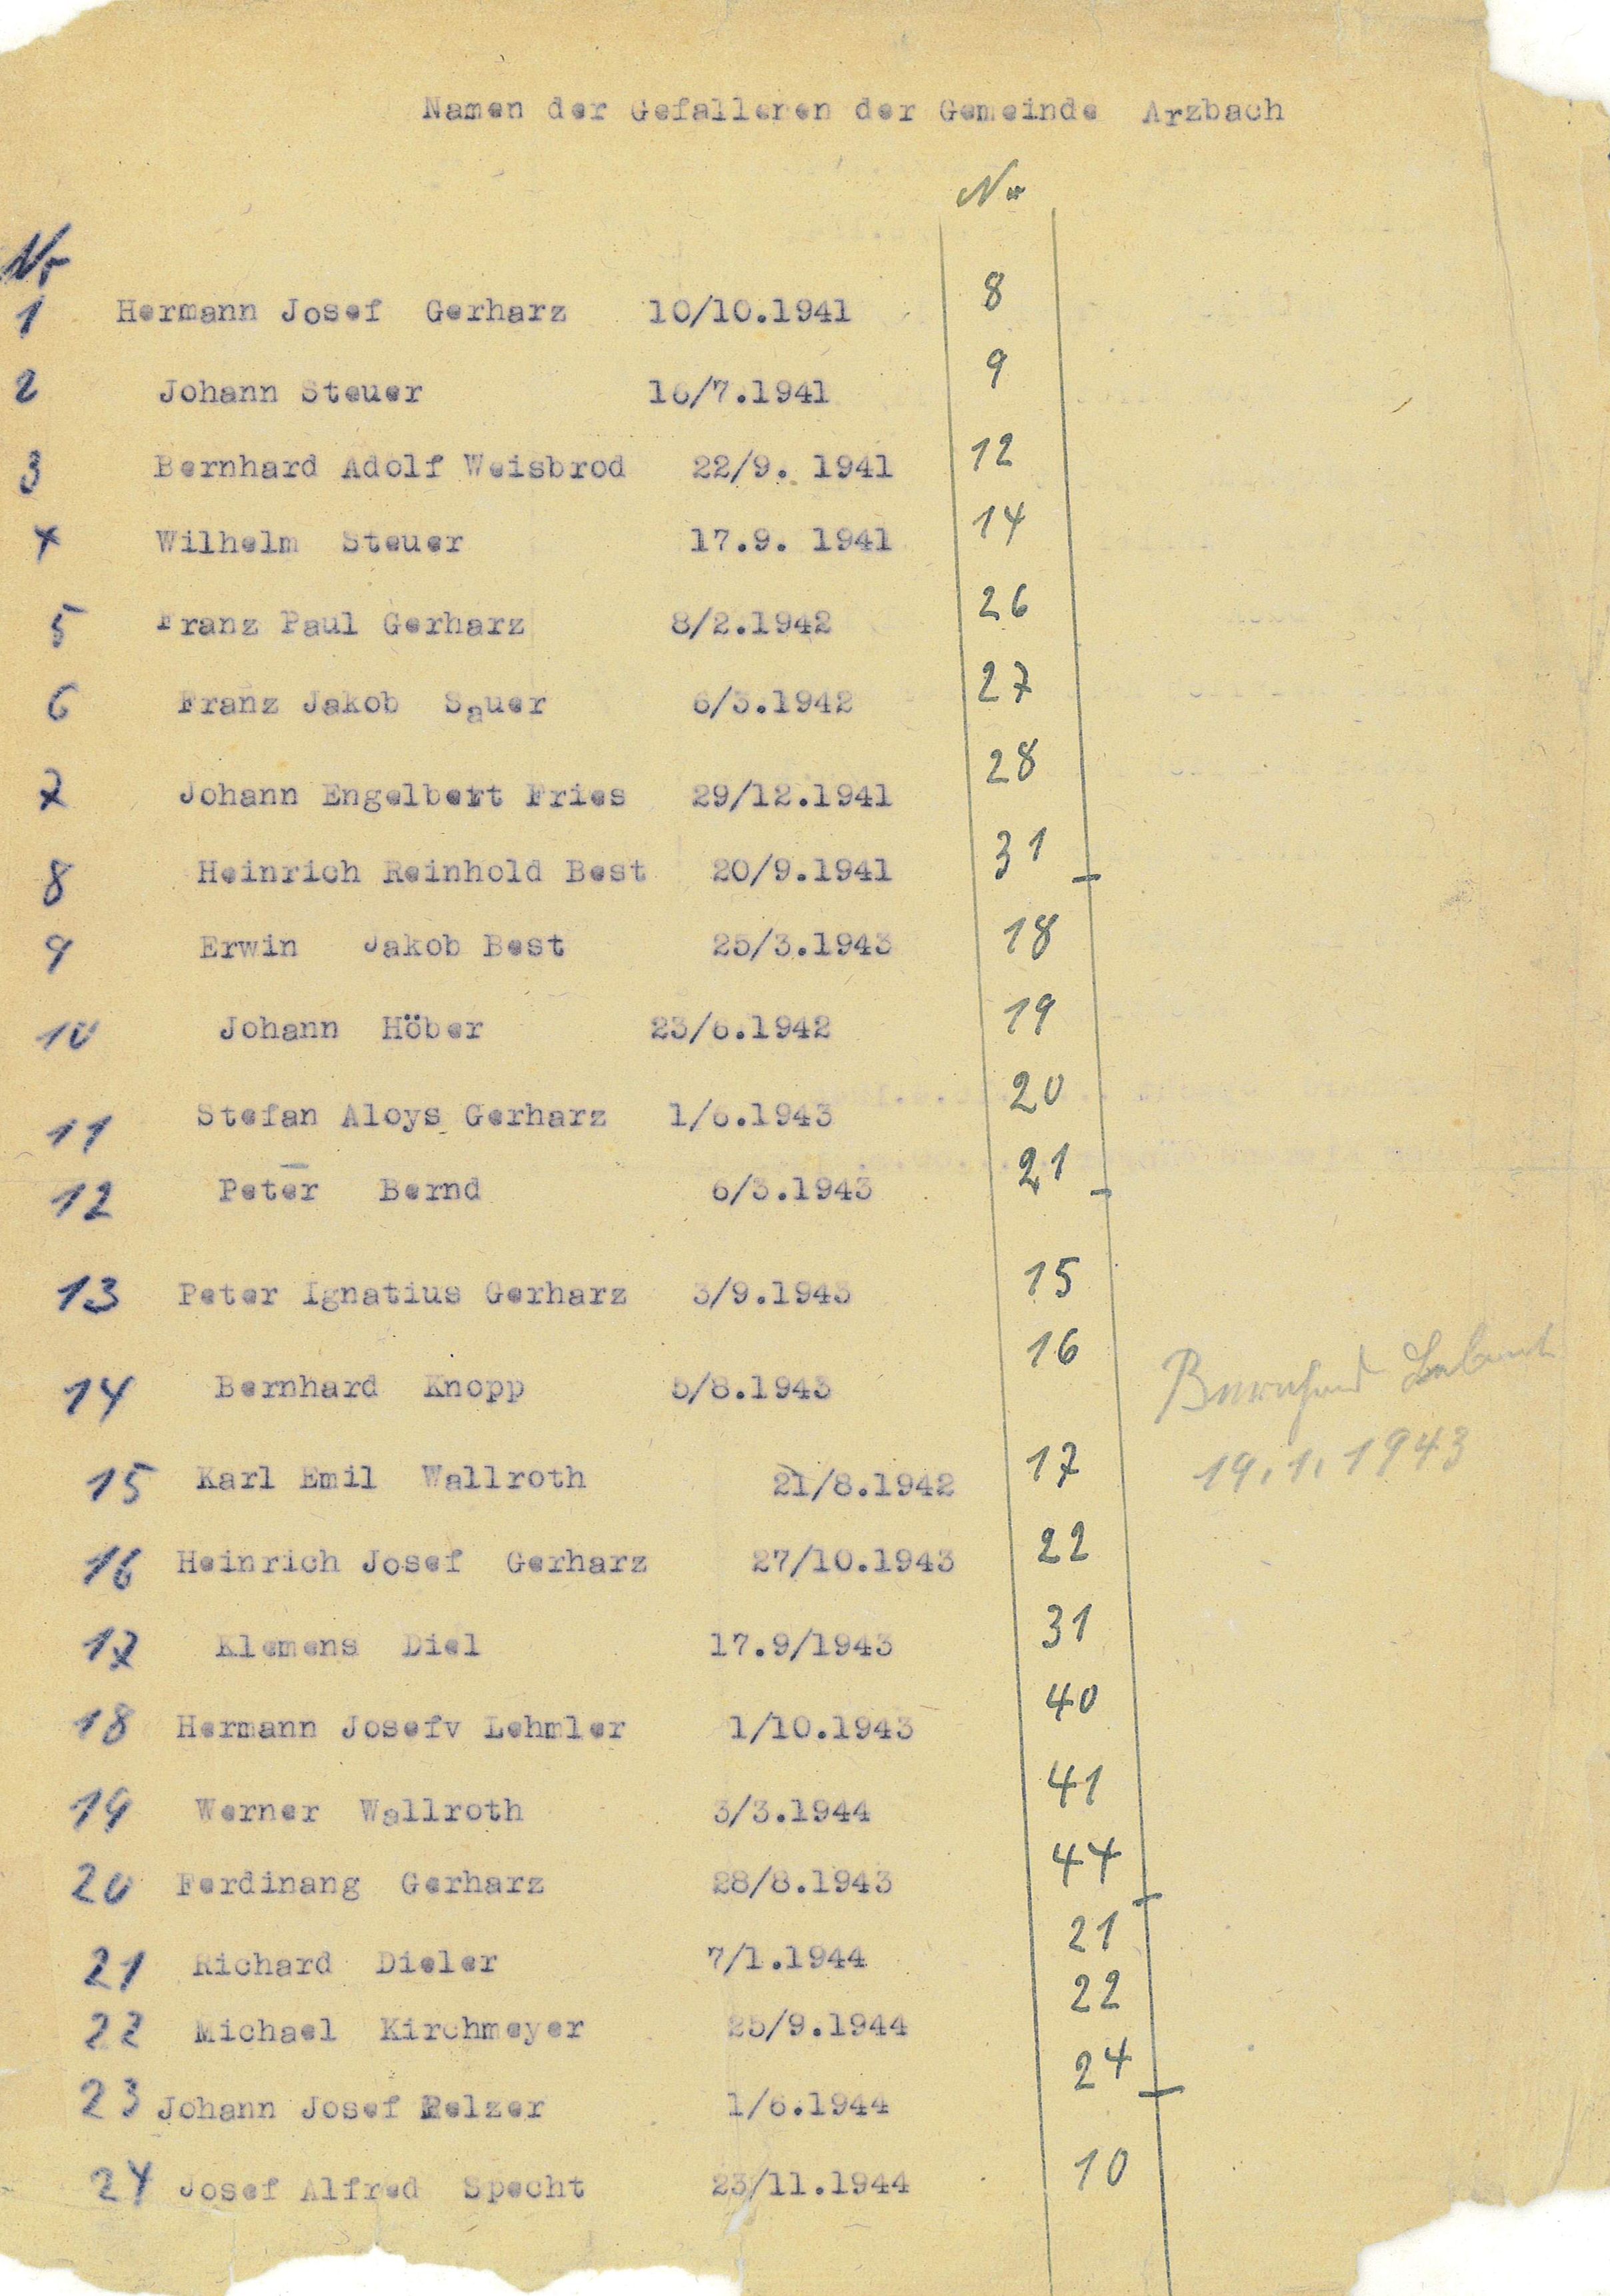 Namen der Gefallenen der Gemeinde Arzbach
Nr
Nr
1 Hermann Josef Gerharz 10/10.1941 8
2 Johann Steuer 16/7.1941 9
3 Bernhard Adolf Weisbrod 22/9. 1941 12
4 Wilhelm Steuer 17.9. 1941 14
5 Franz Paul Gerharz 8/2.1942 26
6 Franz Jakob Sauer 6/3.1942 27
7 Johann Engelbert Fries 29/12.1941 28
8 Heinrich Reinhold Best 20/9.1941 31
9 Erwin Jakob Best 25/3.1943 18
10 Johann Höber 23/6.1942 19
11 Stefan Aloys Gerharz 1/6.1943 20
12 Peter Bernd 6/3.1943 21
13 Peter Ignatius Gerharz 3/9.1943 15
14 Bernhard Knopp 5/8.1943 16
19.1.1943
15 Karl Emil Wallroth 21/8.1942 17
16 Heinrich Josef Gerharz 27/10.1943 22
17 Klemens Diel 17.9/1943 31
18 Hermann Josefv Lehmler 1/10.1943 40
19 Werner Wallroth 3/3.1944 41
20 Ferdinang Gerharz 28/8.1943 44
21 Richard Dieler 7/1.1944 21
22 Michael Kirchmeyer 25/9.1944 22
23 Johann Josef Pelzer 1/6.1944 24
24 Josef Alfred Specht 23/11.1944 10